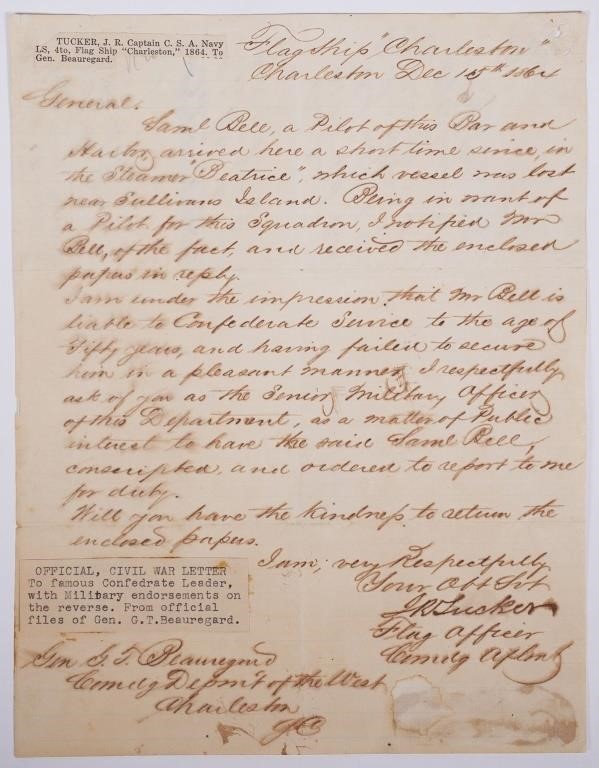 TUCKER, J. R. Captain C. S. A. Navy
LS, 4to, Flag Ship "Charleston," 1864. To
Gen. Beauregard.
Flag Ship "Charleston"
Charleston Dec 15th 1864
General.
Saml Bell, a Pilot of this Bar and
Harbor, arrived here a short time since, in
the Steamer "Beatrice", which vessel was lost
near Sullivans Island. Being in want of
a Pilot for this Squadron, I notified Mr
Bell, of the fact, and received the enclosed
papers in reply.
I am under the impression that Mr Bell is
liable to Confederate Service to the age of
Fifty years, and having failed to secure
him in a pleasant manner, I respectfully
ask of you as the Senior Military Officer
of this Department, as a matter of Public
interest to have the said Saml Bell,
conscripted, and ordered to report to me
for duty.
Will you have the kindness to return the
enclosed papers.
I am, very Respectfully
Your Obt Svt
J R Tucker
Flag Officer
Comdg Afloat
OFFICIAL, CIVIL WAR LETTER
To famous Confedrate Leader,
with Military endorsements on
the reverse. From official
files of Gen. G.T.Beauregard.
Gen G. T. Beauregard
Comdg Depmt of the West
Charleston